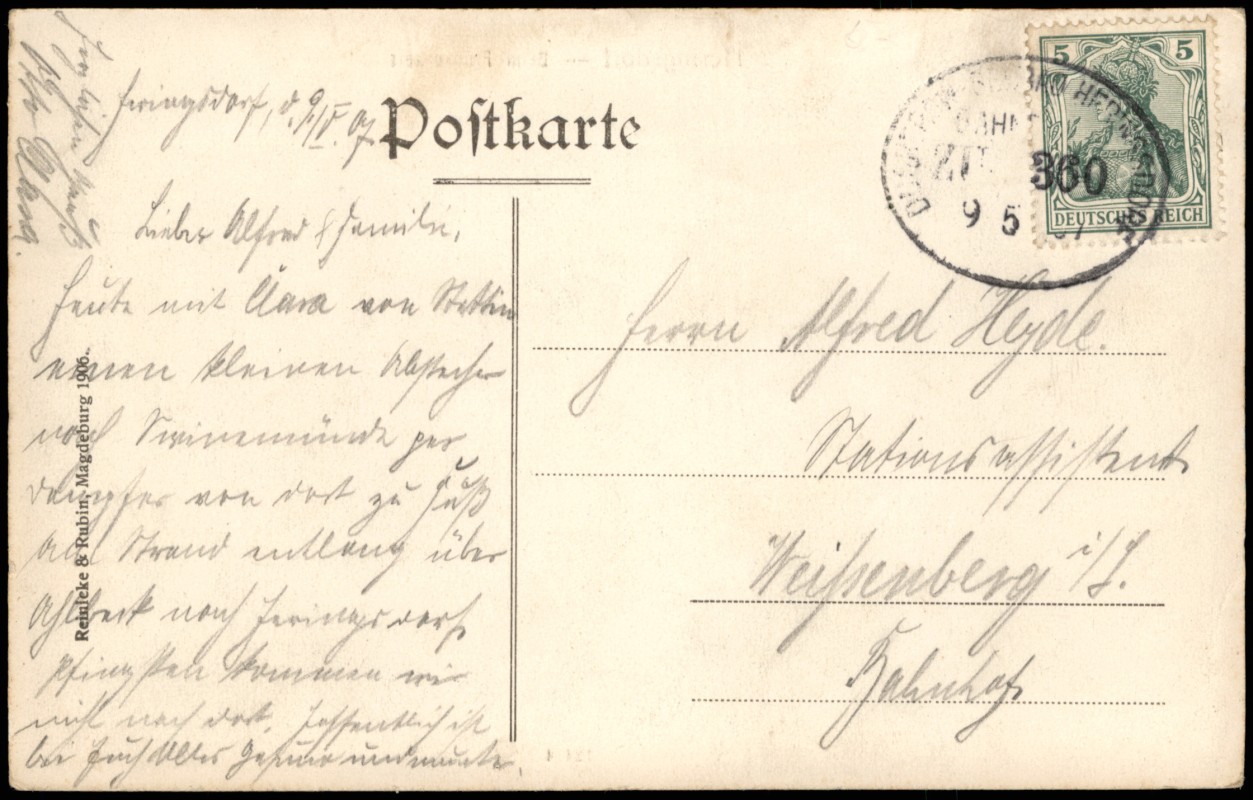 Heringsdorf, d. 9/V. 07
Postkarte
Lieber Alfred & Familie,
Heute mit Clara von Stettin
einen kleinen Abstecher
nach Swinemünde per
Dampfer von dort zu Fuß
am Strand entlang über
Ahlbeck nach Heringsdorf.
Pfingsten kommen wir
nicht nach dort. Hoffentlich ist
bei Euch Alles Gesund und munter.
Herzlichen Gruß
Clara
Reinicke & Rubin, Magdeburg 1906.
5 5
DEUTSCHES REICH
HERINGSDORF
BAHN
ZUG 360
9 5 07
Herrn Alfred Heyde.
Stationsassistent
Weißenberg i/S.
Bahnhof